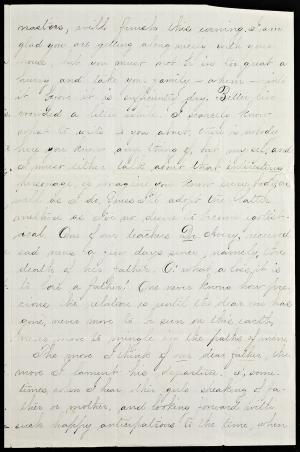 masters, will finish this evening. I am
glad you are getting along nicely with your
house, but you must not be in too great a
hurry and take your family - ahem - into
it before it is sufficiently dry. Better live
crowded a little while. I scarcely know
what to write to you about, there is nobody
here you know any thing of, but myself, and
I must either talk about that
personage, or imagine you know every body as
well as I do. Guess I'll adopt the latter
method as I do no desire to become egotist-
ical. One of our teachers Avery, received
sad news a few days since, namely, the
death of her father. O! what a loss it is
to lose a father! One never knows how pre-
cious the relation is until the dear one has
gone, never more to be seen on this earth,
no more to mingle in the paths of men.
The more I think of our dear father, the
more I lament his departure. &, some-
times when I hear other girls speaking of fa-
ther or mother, and looking forward with
such happy anticipations to the time, when